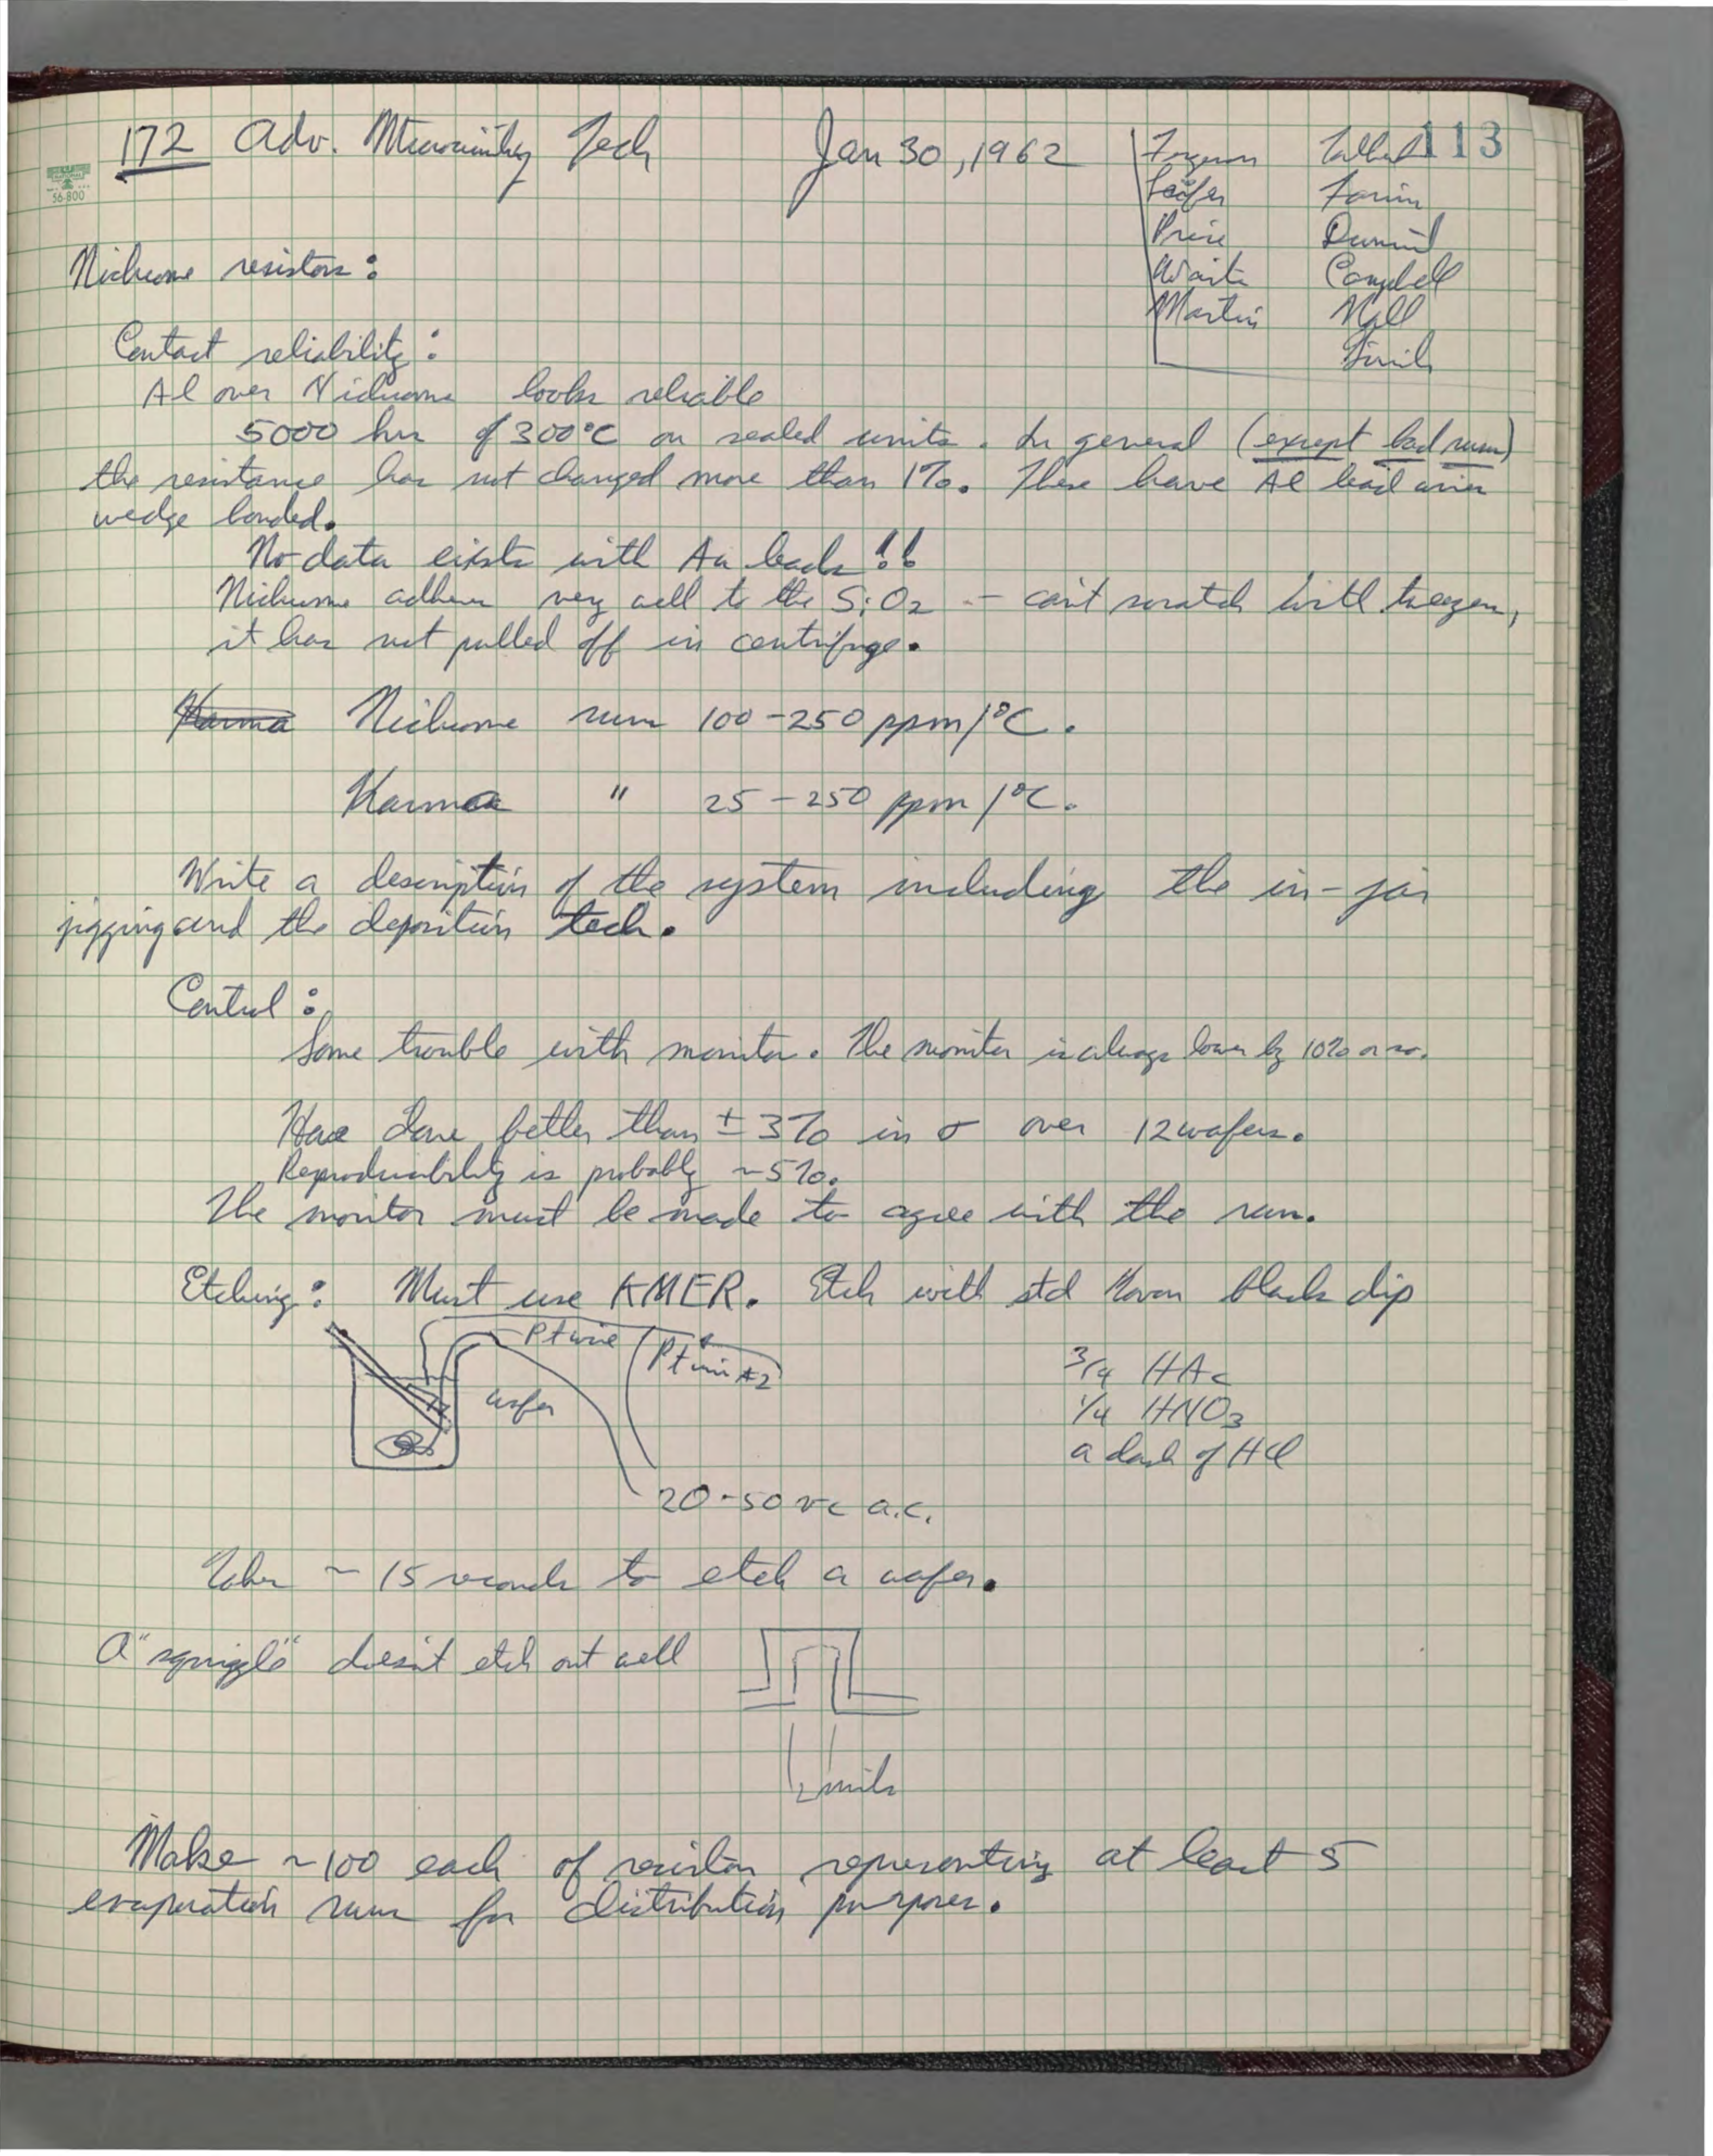 172 Adv. Microcircuitry Tech Jan 30, 1962
113
Ferguson
Leifer
Price
Waits
Martin
Campbell
Hall
56-800
Nichrome resistors:
Contact reliability:
Al over Nichrome looks reliable
5000 hrs of 300°C on sealed units. In general (except bad runs)
the resistance has not changed more than 1%. These have Al lead wires
wedge bonded.
No data exists with Au leads!!
Nichrome adheres very well to the SiO2 -- can't scratch with tweezers,
it has not pulled off in centrifuge.
Karma Nichrome runs 100-250 ppm/°C.
Karma " 25-250 ppm/°C.
Write a description of the system including the in-jar
jigging and the deposition tech.
Control:
Some trouble with monitor. The monitor is always lower by 10% or so.
Have done better than ±3% in σ over 12 wafers.
Reproducibility is probably ~5%.
The monitor must be made to agree with the run.
Etching: Must use KMER. Etch with std black dip
Pt wire
Pt wire #2
wafer
3/4 HAc
1/4 HNO3
a dash of HCl
20-50 a.c.
Takes ~15 seconds to etch a wafer.
A "squiggle" doesn't etch out well
1/2 mils
Make ~100 each of resistors representing at least 5
evaporation runs for distribution purposes.